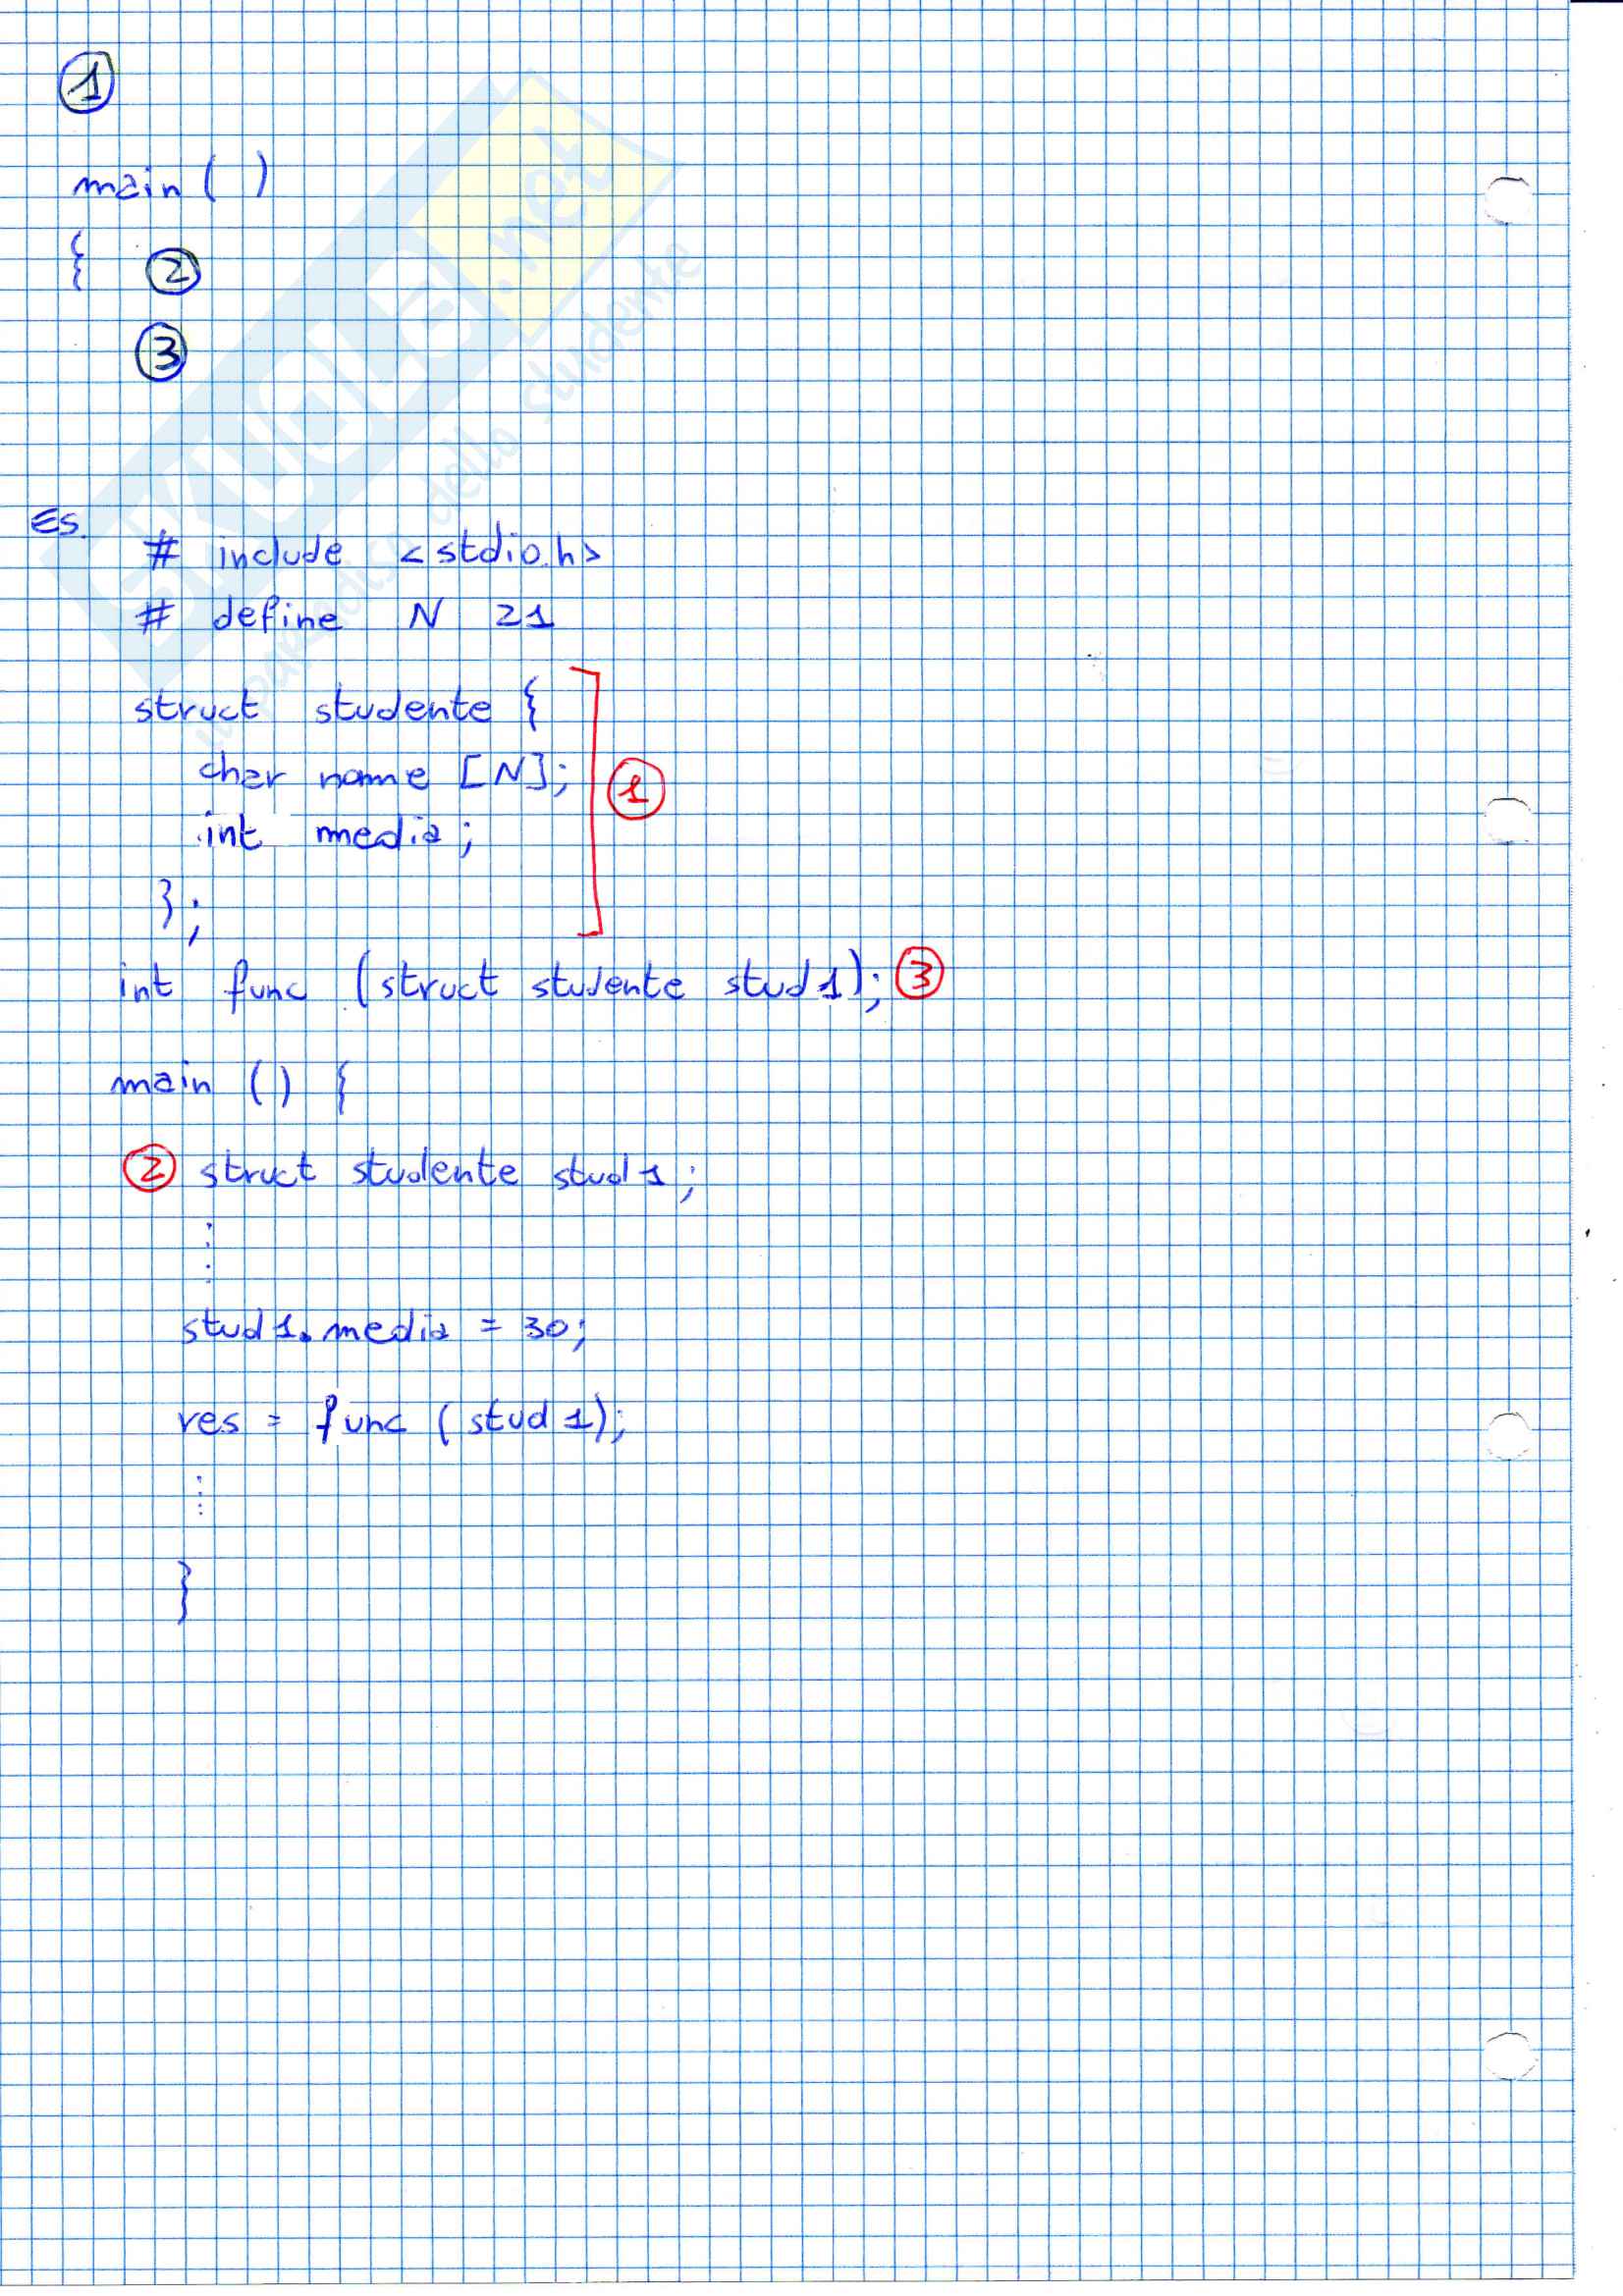 1
main ( )
{ 2
3
Es.
# include <stdio.h>
# define N 21
struct studente {
char nome [N];
int media;
};
1
int func (struct studente stud1); 3
main () {
2 struct studente stud1;
⋮
stud1.media = 30;
res = func (stud1);
⋮
}
SKUOLA.net
il paradiso dello studente